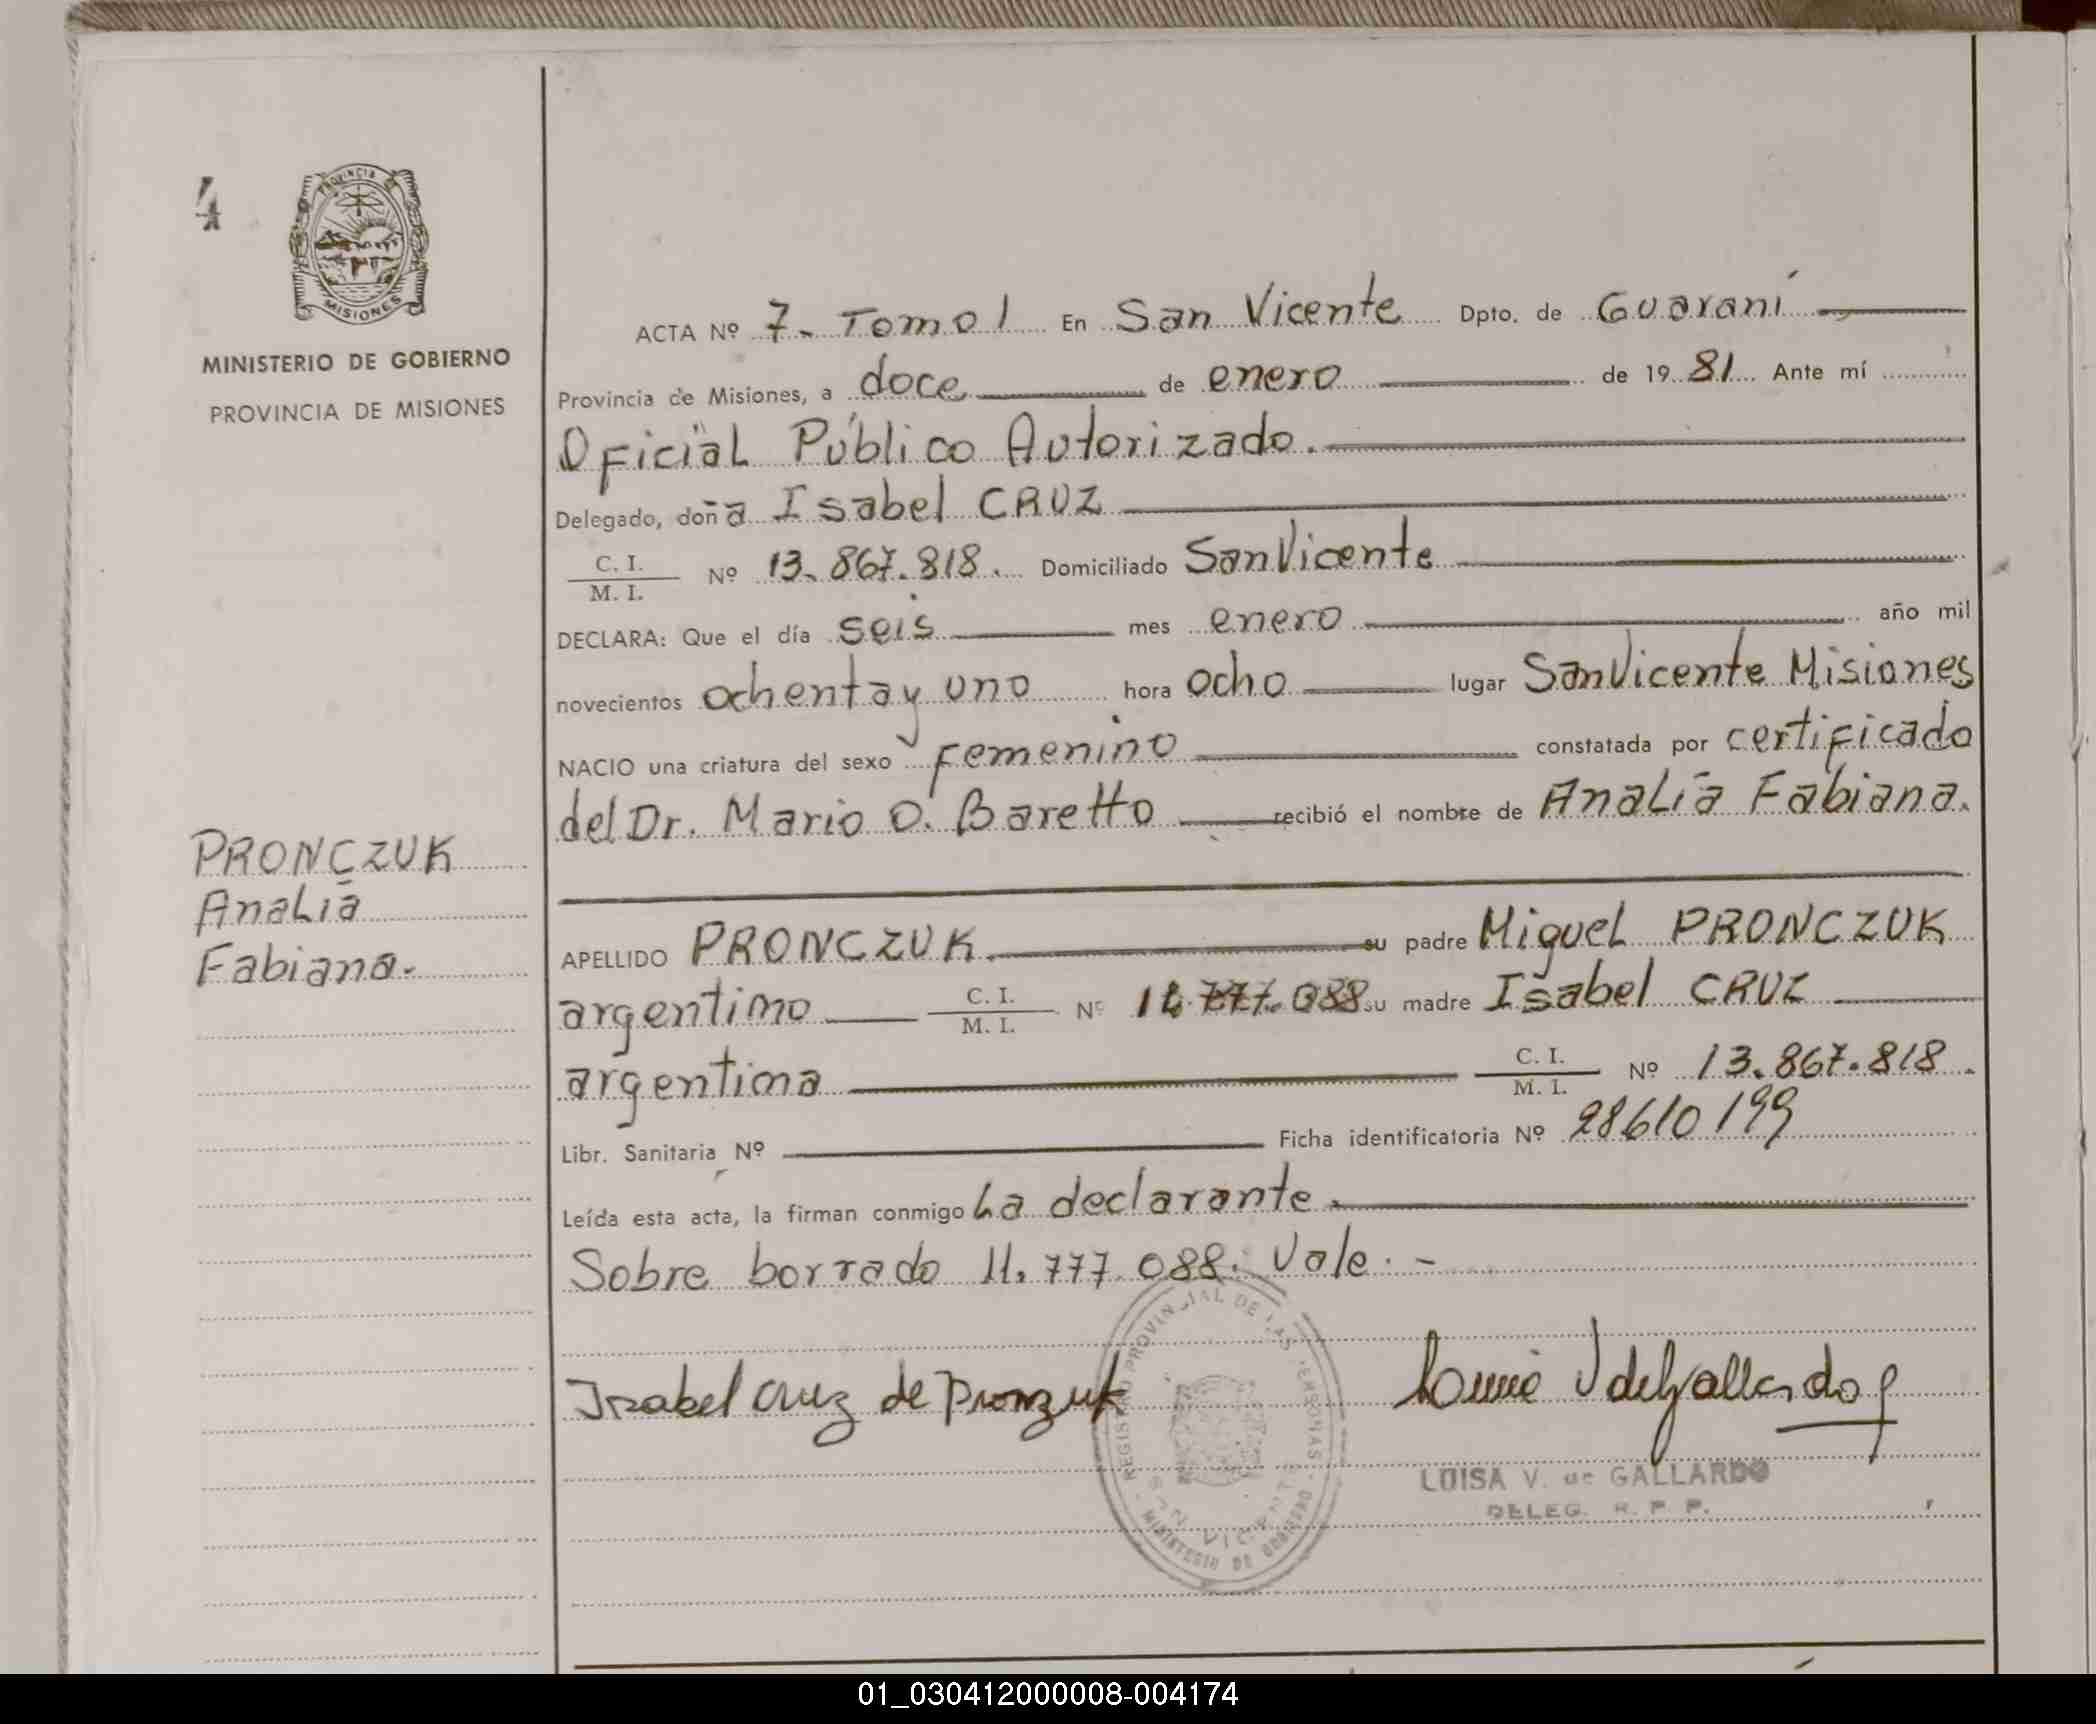 4
PROVINCIA DE
MISIONES
MINISTERIO DE GOBIERNO
PROVINCIA DE MISIONES
ACTA Nº 7. Tomo 1 En San Vicente Dpto. de Guaraní
Provincia de Misiones, a doce de enero de 1981 Ante mí
Oficial Público Autorizado.
Delegado, doña Isabel CRUZ
C. I.
M. I.
Nº 13.867.818. Domiciliado San Vicente
DECLARA: Que el día seis mes enero año mil
novecientos ochenta y uno hora ocho lugar San Vicente Misiones
NACIO una criatura del sexo femenino constatada por certificado
del Dr. Mario O. Baretto recibió el nombre de Analía Fabiana.
PRONCZUK
Analía
Fabiana.
APELLIDO PRONCZUK. su padre Miguel PRONCZUK
argentino C. I.
M. I.
Nº 11.777.088 su madre Isabel CRUZ
argentina C. I.
M. I.
Nº 13.867.818.
Libr. Sanitaria Nº Ficha identificatoria Nº 28610199
Leída esta acta, la firman conmigo La declarante.
Sobre borrado 11.777.088. Vale. -
REGISTRO PROVINCIAL DE LAS PERSONAS
SAN VICENTE
MINISTERIO DE GOBIERNO
Isabel Cruz de Pronzuk
LUISA V. de GALLARDO
DELEG. R. P. P.
01_030412000008-004174